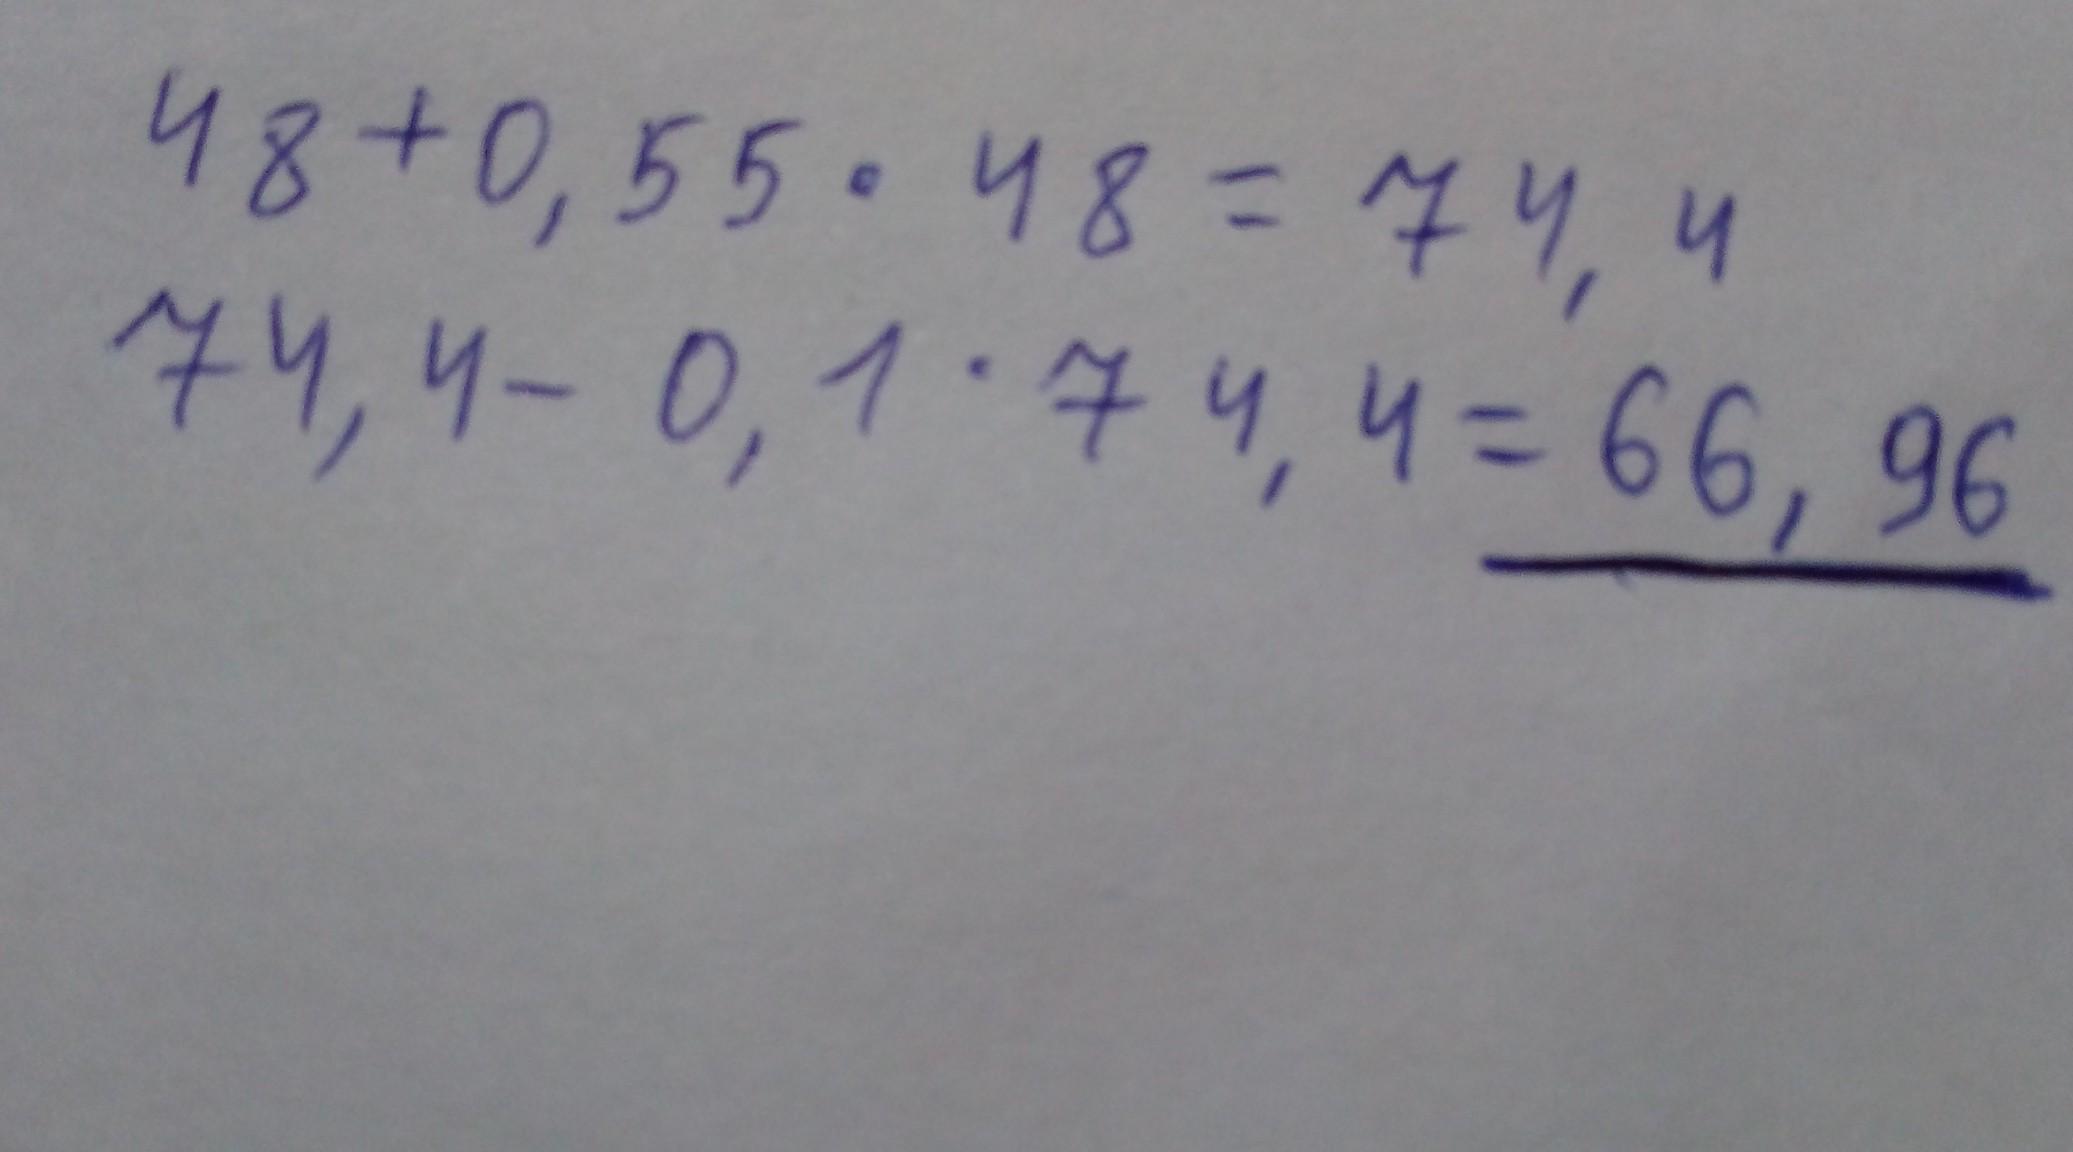 48+0,55·48=74,4
74,4-0,1·74,4=66,96